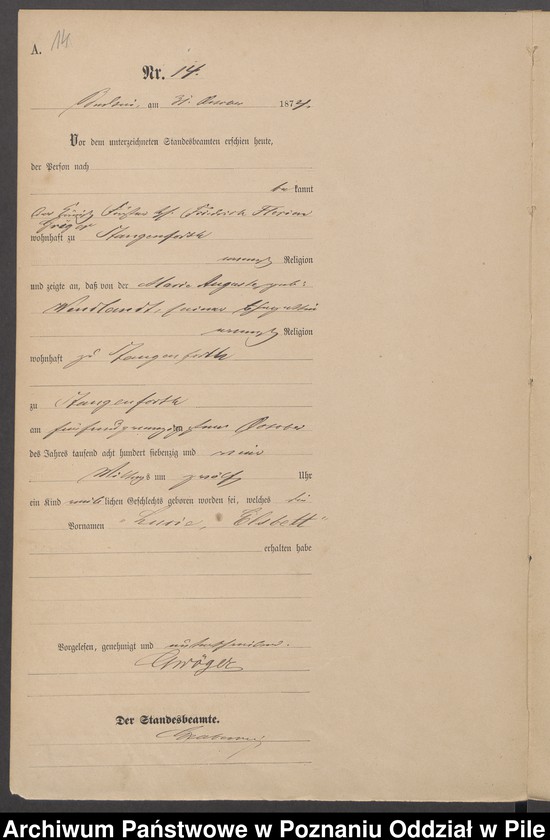 A. 14
Nr. 14.
am 31. October 1874.
Vor dem unterzeichneten Standesbeamten erschien heute,
der Person nach
be kannt
der Förster Friedrich
wohnhaft zu Stangenforth
Religion
und zeigte an, daß von der Marie Auguste, geb:
Wendlandt, seiner Ehegattin
Religion
wohnhaft zu Stangenforth
zu Stangenforth
am October
des Jahres tausend acht hundert siebenzig und vier
Mittags um zwölf Uhr
ein Kind weiblichen Geschlechts geboren worden sei, welches die
Vornamen "Lucie, Elsbett"
erhalten habe
Vorgelesen, genehmigt und unterschrieben.
Gröger
Der Standesbeamte.
Archiwum Państwowe w Poznaniu Oddział w Pile